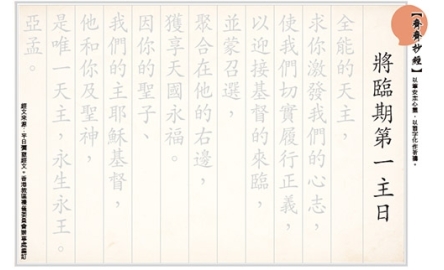 【齊齊抄經】
以筆安定心靈，以習字化作祈禱。
將臨期第一主日
全能的天主，
求你激發我們的心志，
使我們切實履行正義，
以迎接基督的來臨，
並蒙召選，
聚合在他的右邊，
獲享天國永福。
因你的聖子、
我們的主耶穌基督，
他和你及聖神，
是唯一天主，永生永王。
亞孟。